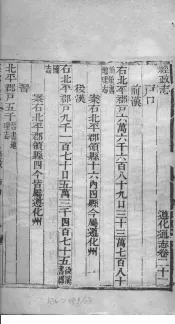 遵化通志卷二十一
經政志
戶口
前漢
右北平郡戶六萬六千六百八十九口三十二萬七百八十
案右北平郡領縣十六內四縣今屬遵化州
後漢
右北平郡戶九千一百七十口五萬三千四百七十五
案右北平郡領縣四今皆屬遵化州
晉
北平郡戶五千